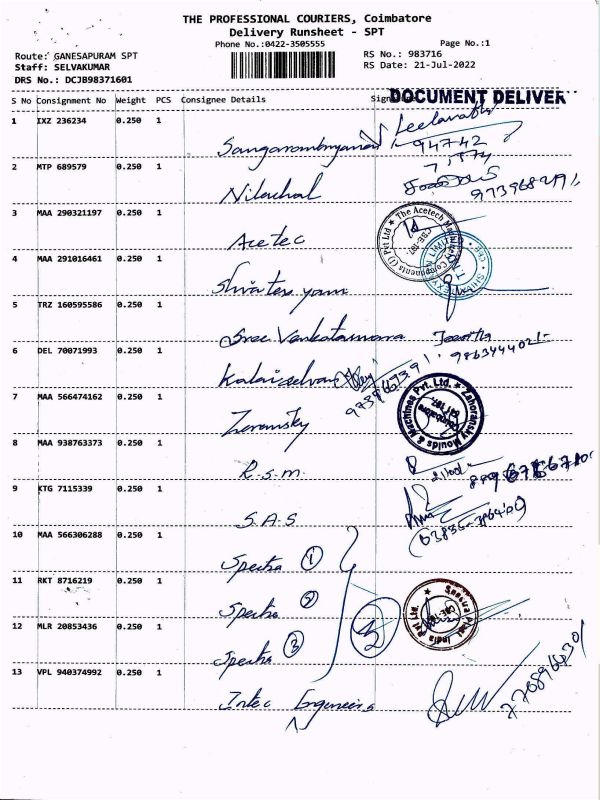 THE PROFESSIONAL COURIERS, Coimbatore
Delivery Runsheet - SPT
Phone No.:0422-3505555
Page No.:1
Route: GANESAPURAM SPT
RS No.: 983716
Staff: SELVAKUMAR
RS Date: 21-Jul-2022
DRS No.: DCJB98371601
S No Consignment No Weight PCS Consignee Details
DOCUMENT DELIVER
1 IXZ 236234 0.250 1
94742
2 MTP 689579 0.250 1 Nilachal
3 MAA 290321197 0.250 1 Acetec
The Acetech Machinery Components (I) Pvt Ltd
CBE-107.
4 MAA 291016461 0.250 1
5 TRZ 160595586 0.250 1 Sree Venkataramana
6 DEL 70071993 0.250 1 Kalaiselvan
7 MAA 566474162 0.250 1
Zahoransky Moulds & Machines Pvt. Ltd.
Coimbatore
641 107
8 MAA 938763373 0.250 1 R.s.m.
9 KTG 7115339 0.250 1 S.A.S
10 MAA 566306288 0.250 1 Spectra 1
11 RKT 8716219 0.250 1 Spectra 2
3
India Pvt Ltd
12 MLR 20853436 0.250 1 Spectra 3
13 VPL 940374992 0.250 1 Intec Engineers